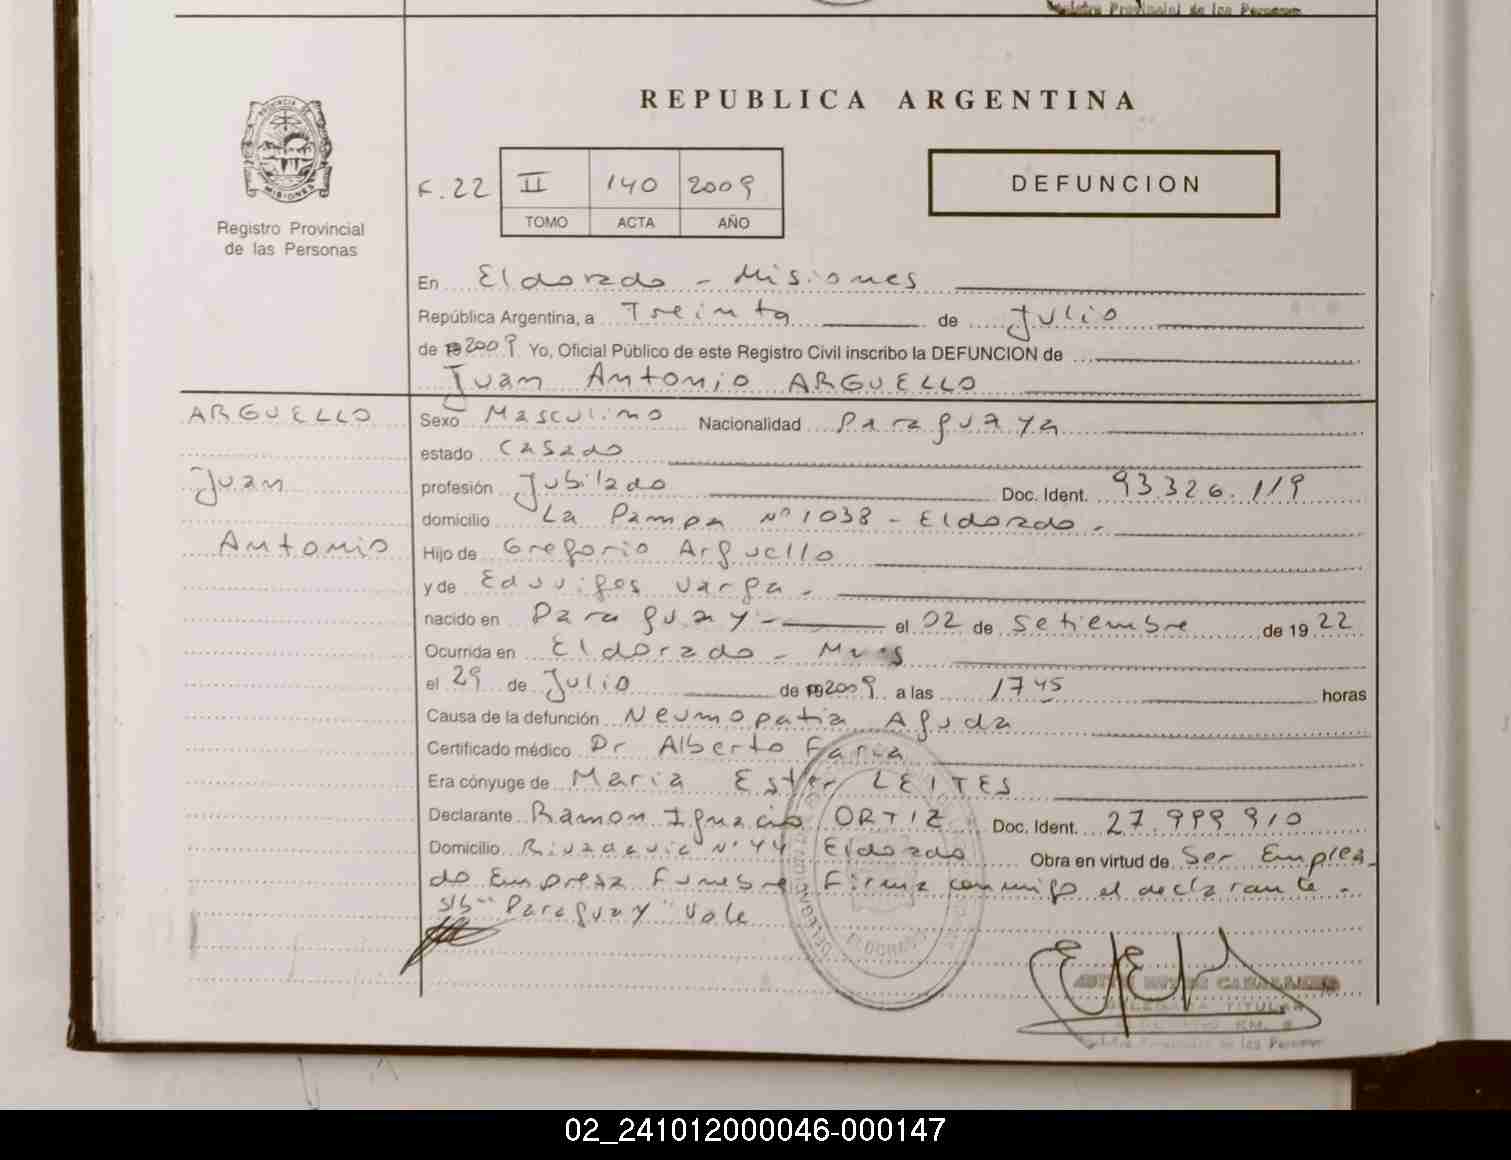 Registro Provincial de las Personas
REPUBLICA ARGENTINA
PROVINCIA DE
MISIONES
Registro Provincial
de las Personas
F. 22 II 140 2009
TOMO ACTA AÑO
DEFUNCION
En Eldorado - Misiones
República Argentina, a Treinta de Julio
de 2009 Yo, Oficial Público de este Registro Civil inscribo la DEFUNCION de
Juan Antonio ARGUELLO
ARGUELLO
Juan
Antonio
Sexo Masculino Nacionalidad Paraguaya
estado Casado
profesión Jubilado Doc. Ident. 93.326.119
domicilio La Pampa Nº 1038 - Eldorado.-
Hijo de Gregorio Arguello
y de Eduviges Varga.
nacido en Paraguay - el 02 de Setiembre de 1922
Ocurrida en Eldorado -
el 29 de Julio de 2009 a las 1745 horas
Causa de la defunción Neumopatia Aguda
Certificado médico Dr Alberto Faria
Era cónyuge de Maria Ester LEITES
Declarante Ramon Ignacio ORTIZ Doc. Ident. 27.999.910
Domicilio Rivadavia Nº 44 Eldorado Obra en virtud de Ser Emplea-
do Empresa Funebre. Firma conmigo el declarante.-
S/b "Paraguay" Vale
ELDORADO
TITULAR
KM. 9
Registro Provincial de las Personas
02_241012000046-000147